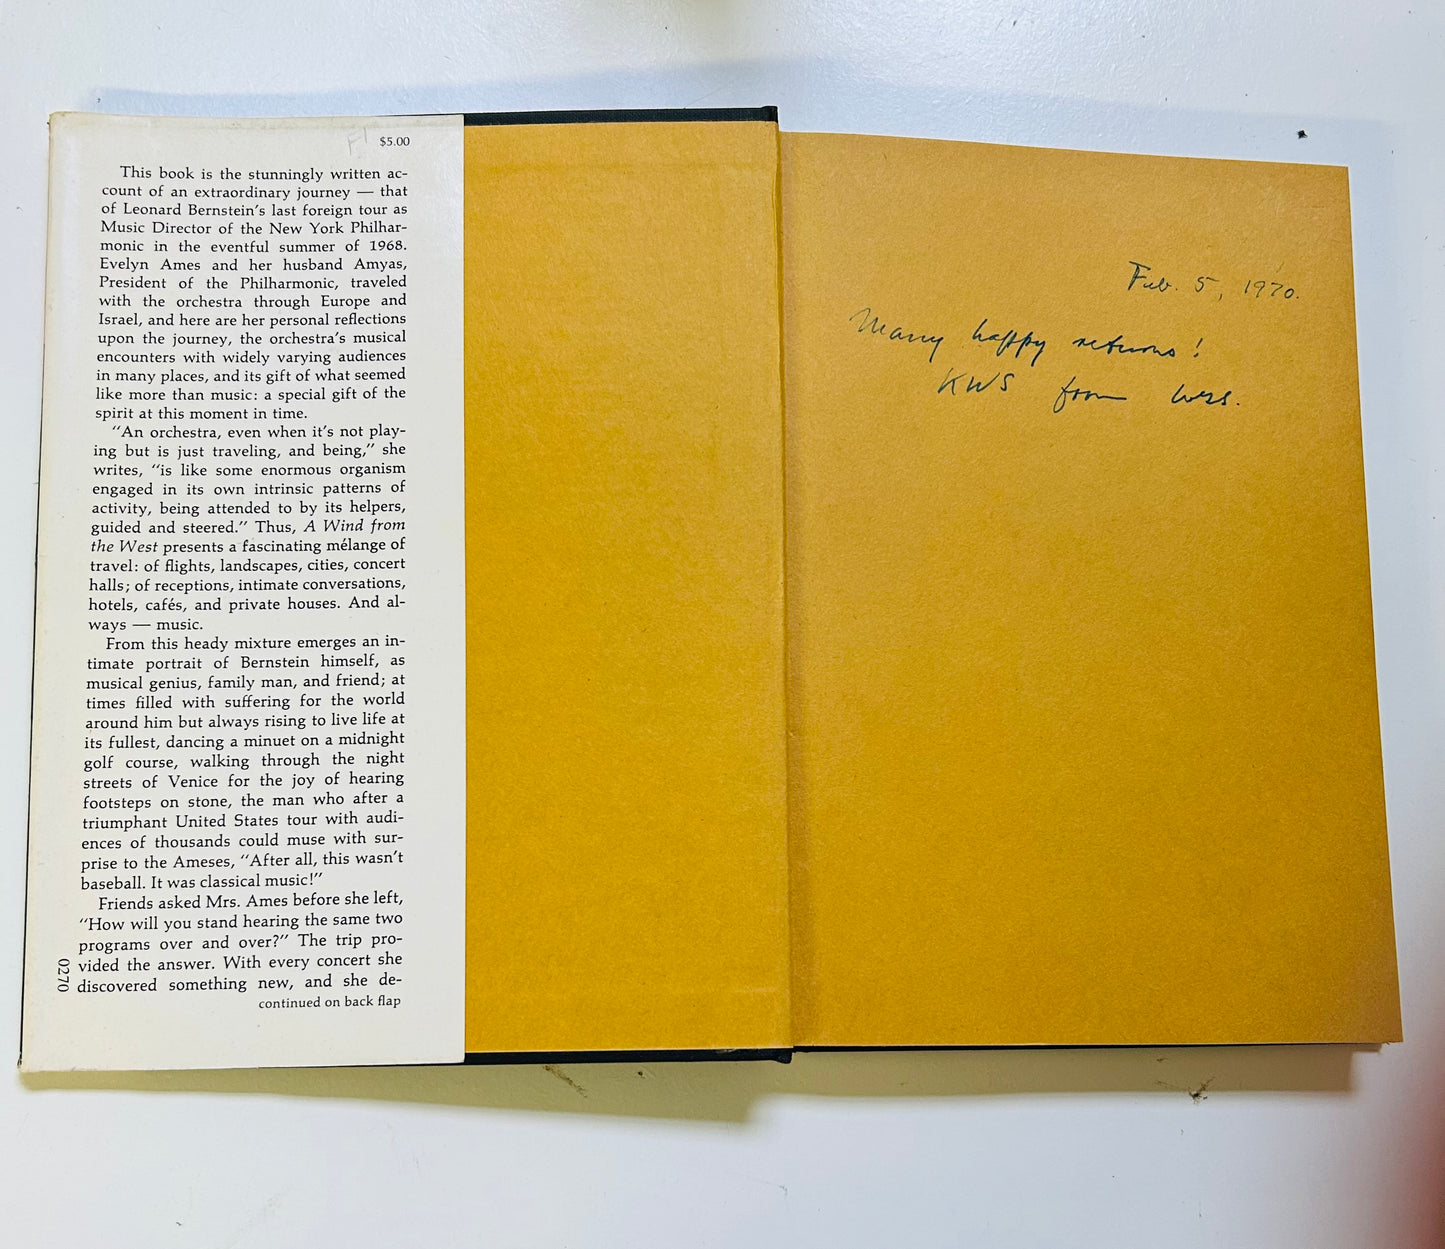 F1
$5.00
This book is the stunningly written ac-
count of an extraordinary journey — that
of Leonard Bernstein's last foreign tour as
Music Director of the New York Philhar-
monic in the eventful summer of 1968.
Evelyn Ames and her husband Amyas,
President of the Philharmonic, traveled
with the orchestra through Europe and
Israel, and here are her personal reflections
upon the journey, the orchestra's musical
encounters with widely varying audiences
in many places, and its gift of what seemed
like more than music: a special gift of the
spirit at this moment in time.
"An orchestra, even when it's not play-
ing but is just traveling, and being," she
writes, "is like some enormous organism
engaged in its own intrinsic patterns of
activity, being attended to by its helpers,
guided and steered." Thus, A Wind from
the West presents a fascinating mélange of
travel: of flights, landscapes, cities, concert
halls; of receptions, intimate conversations,
hotels, cafés, and private houses. And al-
ways — music.
From this heady mixture emerges an in-
timate portrait of Bernstein himself, as
musical genius, family man, and friend; at
times filled with suffering for the world
around him but always rising to live life at
its fullest, dancing a minuet on a midnight
golf course, walking through the night
streets of Venice for the joy of hearing
footsteps on stone, the man who after a
triumphant United States tour with audi-
ences of thousands could muse with sur-
prise to the Ameses, "After all, this wasn't
baseball. It was classical music!"
Friends asked Mrs. Ames before she left,
"How will you stand hearing the same two
programs over and over?" The trip pro-
vided the answer. With every concert she
discovered something new, and she de-
continued on back flap
0270
Feb. 5, 1970.
Many happy returns!
KWS from